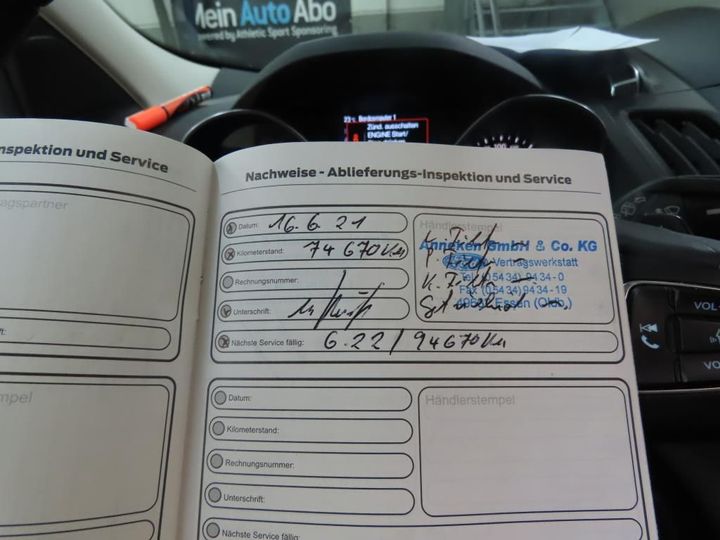 Mein Auto Abo
powered by Athletic Sport Sponsoring
Bordcomputer 1
Zünd. ausschalten
ENGINE Start/
100
Inspektion und Service
Nachweise - Ablieferungs-Inspektion und Service
Datum: 16.6.21
Kilometerstand: 74 670 Km
Rechnungsnummer:
Unterschrift:
Nächste Service fällig: 6.22 / 94670 Km
Händlerstempel
Anneken GmbH & Co. KG
Vertragswerkstatt
Tel. (05434) 9434-0
Fax (05434) 9434-19
49632 Essen (Oldb.)
Datum:
Kilometerstand:
Rechnungsnummer:
Unterschrift:
Nächste Service fällig:
Händlerstempel
VOL
VO